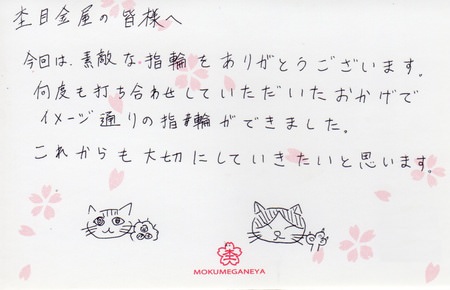 杢目金屋の皆様へ
今回は、素敵な指輪をありがとうございます。
何度も打ち合わせしていただいたおかげで
イメージ通りの指輪ができました。
これからも大切にしていきたいと思います。
杢
MOKUMEGANEYA